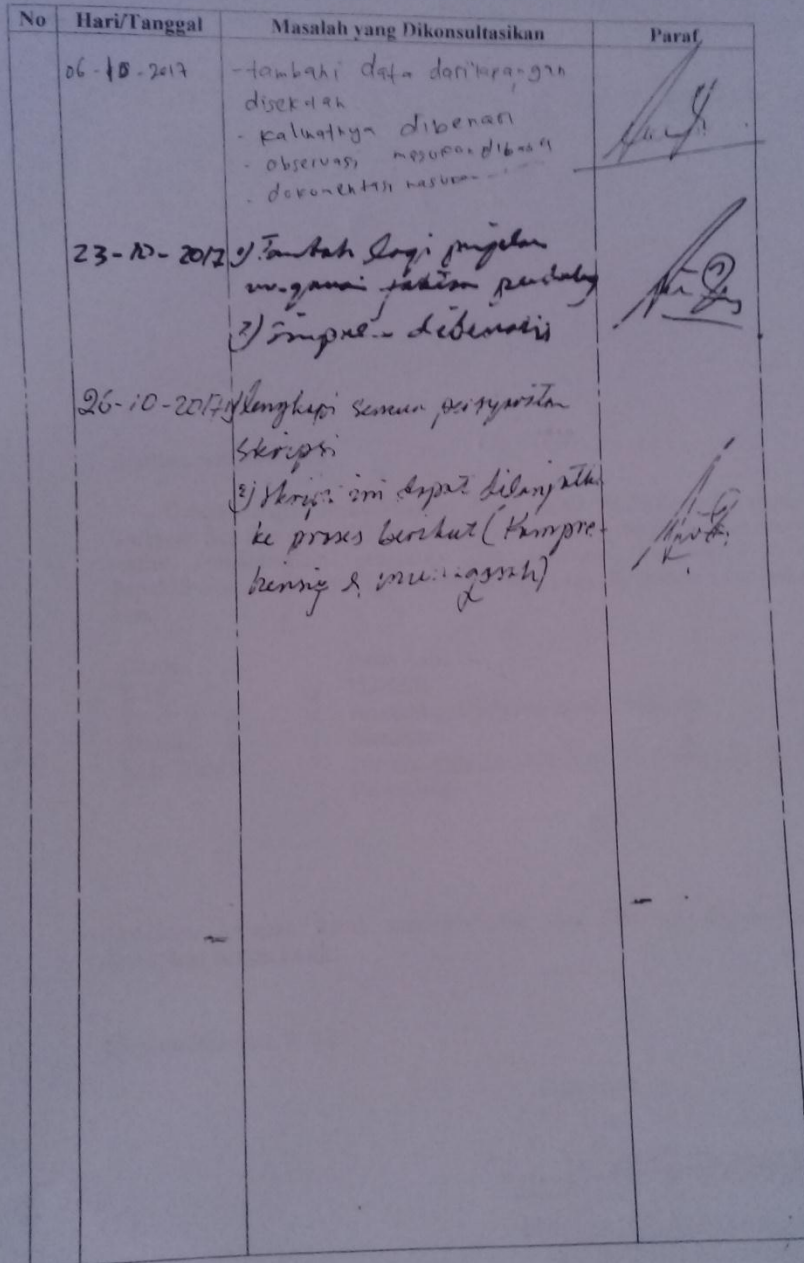 No Hari/Tanggal Masalah yang Dikonsultasikan Paraf
06-10-2017 - tambahi data dari lapangan
disekolah
- kalimatnya dibenari
- observasi
- dokumentasi
23-10-2017 1) Tambah lagi
faktor
2) dibenari
26-10-2017 1) lengkapi semua persyaratan
skripsi
2) skripsi ini dapat dilanjutk
ke proses berikut (Kompre-
hensif & munaqasah)